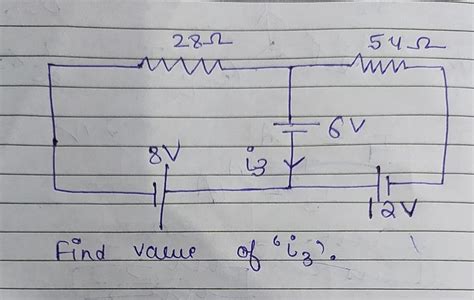 28Ω 54Ω
6V
8V i₃
12V
Find value of "i₃".